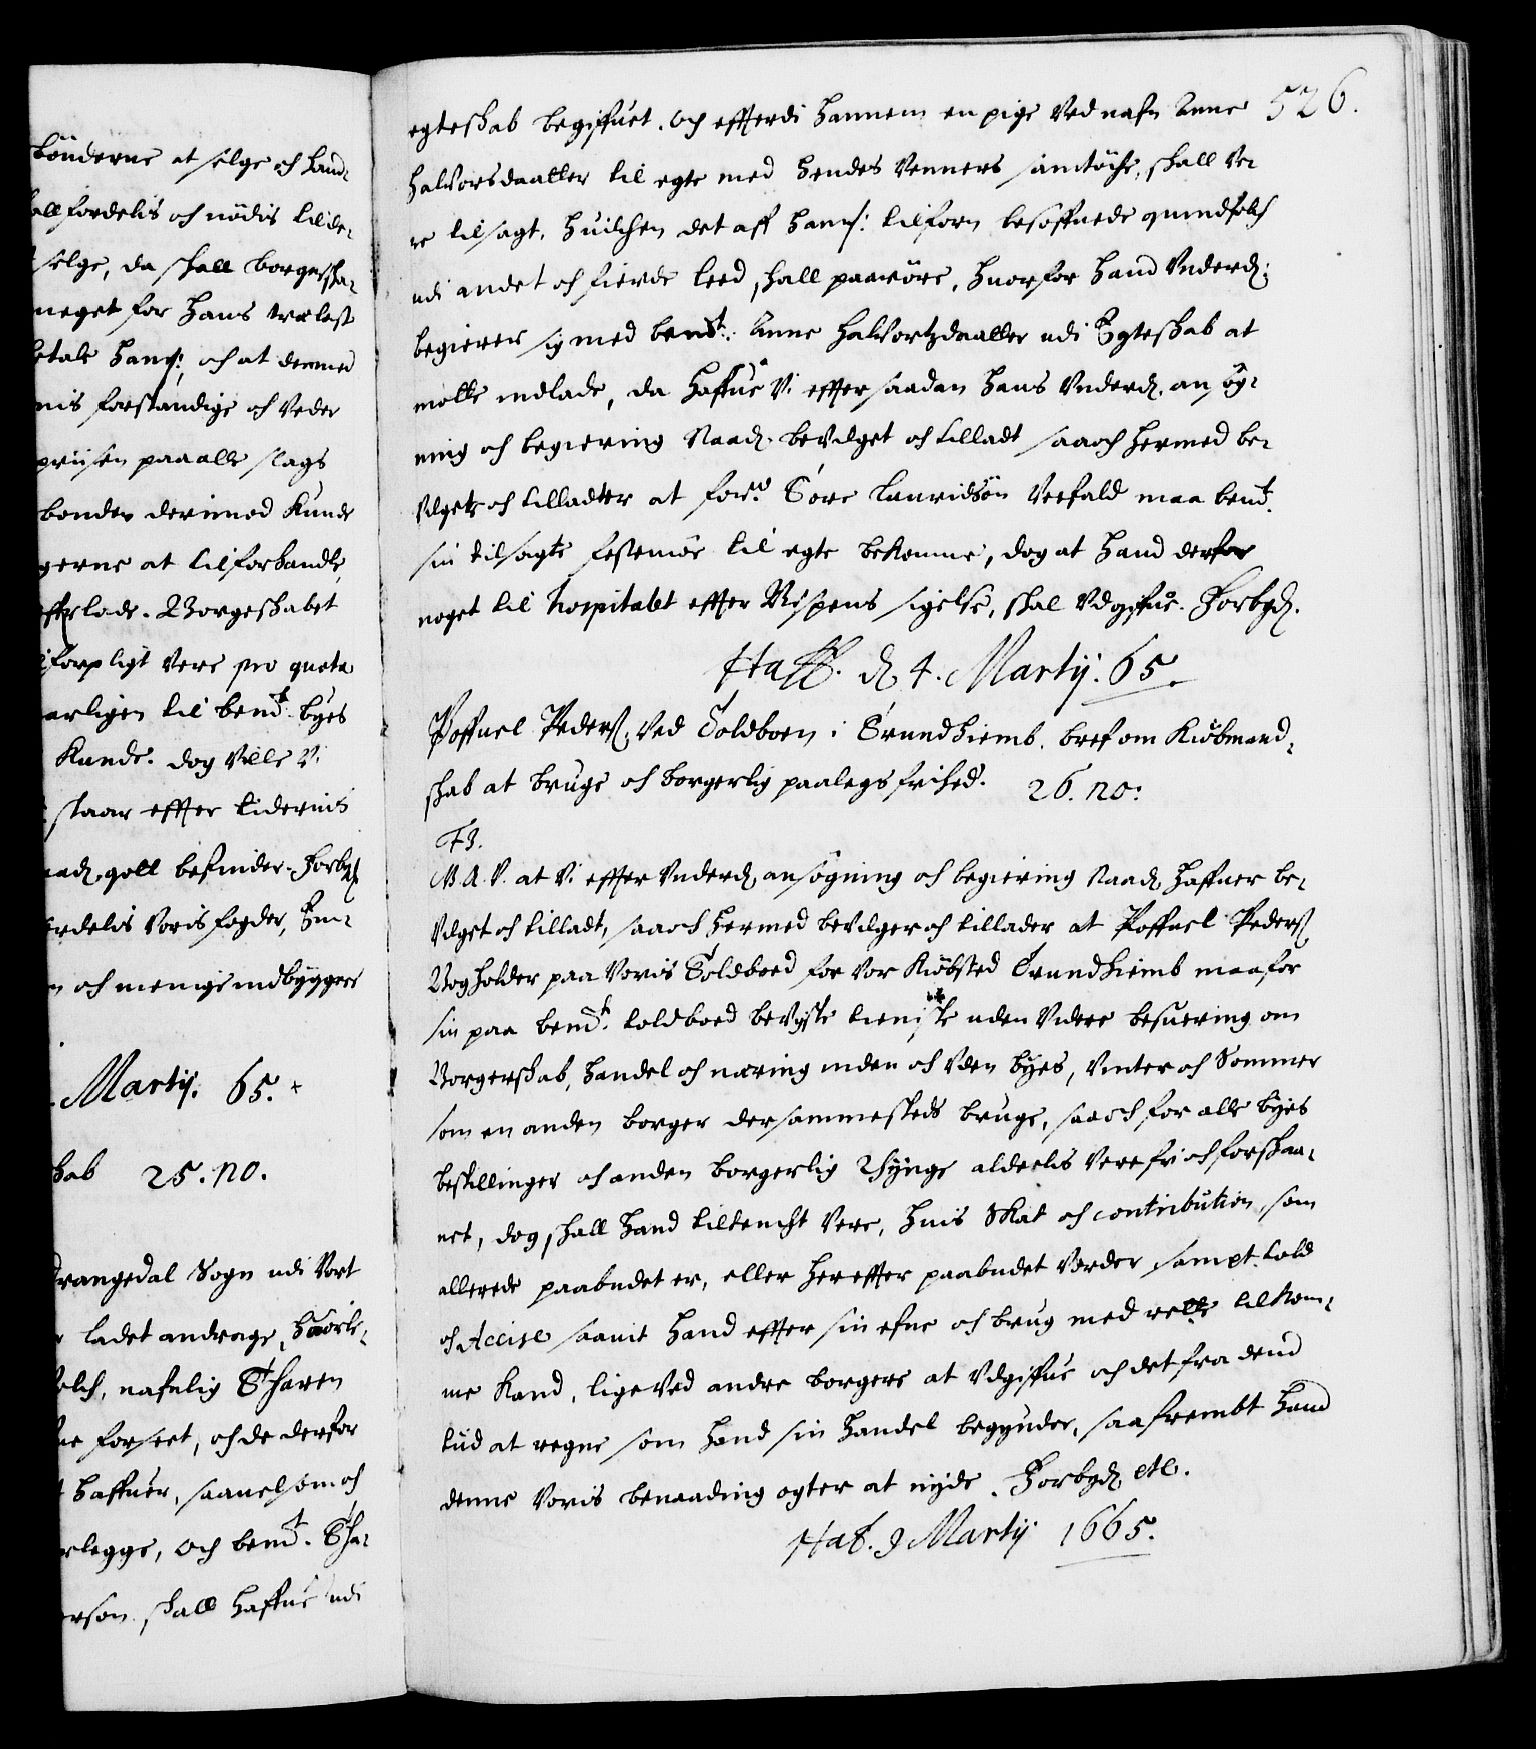 bønderne at selge och hand-
all fordelis och nødis til de-
selge, da skall borgeska-
meget for hans trælast
betale hans: och at dermed
nis forstandige och Veder
priisen paa alle slags
bonden derimod Kunde
gerne at tilforhandle,
efterlade. Borgeskabet
forpligt Vere pro quota
aarligen til bemt. byes
Kunde. dog Ville Vi
staar effter tidernis
naad. gott befinder. Forbyd.
erdelis Voris fogder, Em-
n och menige indbyggere
Martij. 65.
skab 25. no.
Drangedal Sogn udi Vort
ladet andrage, huorle-
folch, nafnlig
ne forseet, och de derfor
haffuer, saauelsom och
rlegge, och bemt.
erson skall haffue udi
526.
egteskab begiffuet. och effterdi hannem en pige Ved nafn Anne
Halvorsdaatter til egte med hendes Venners samtøche, skall Ve-
re tilsagt, huilchen det aff hans: tilforn besoffuede quindfolch
udi andet och fierde leed skall paarøre, huorfor hand Underd:
begierer sig med bemt: Anne Halvorszdaatter udi Egteskab at
motte indlade, da haffue Vi effter saadan hans Underd. ansøg-
ning och begiering Naad. beVilget och tilladt saaoch hermed be-
Vilger och tillader at ford. Søre Lauridsøn Veefald maa bemt.
sin tilsagte festemøe til egte bekomme, dog at hand derfor
noget til hospitalet effter Bispens sigelse, skal Udgiffue. Forbyd.
Haff. d. 4. Martij. 65.
Poffuel Peders. Ved Toldboen i Trundhiemb. bref om Kiøbmand-
skab at bruge och borgerlig paalegs frihed. 26. no:
F3.
G. A. V. at Vi effter Underd. ansøgning och begiering Naad. haffuer be-
Vilget och tilladt, saaoch hermed beVilger och tillader at Poffuel Peders.
Bogholder paa Voris Toldboed for Vor Kiøbsted Trundhiemb maa for
sin paa bemt. toldboed beViste tieniste uden Videre besuering om
Borgerskab, handel och næring inden och Uden byes, Vinter och Sommer
som en anden borger dersammesteds bruge, saaoch for alle byes
bestillinger och anden borgerlig Thynge aldeelis Vere fri och forskaa-
net, dog skall hand tiltencht Vere, huis Skat och contribution som
allerede paabudet er, eller hereffter paabudet Vorder sampt told
och Accise saauit hand effter sin efne och brug med rette tilkom-
me Kand, lige Ved andre borgere at Udgiffue och det fra dend
tiid at regne som hand sin handel begynder, saafrembt hand
denne Voris benaading agter at nyde. Forbyd. etc.
Haf. 9 Martij 1665.